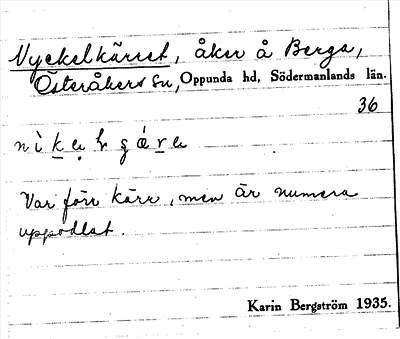 Nyckelkärret, åker å Berga,
Österåkers sn, Oppunda hd, Södermanlands län.
36
Var förr kärr, men är numera
uppodlat.
Karin Bergström 1935.